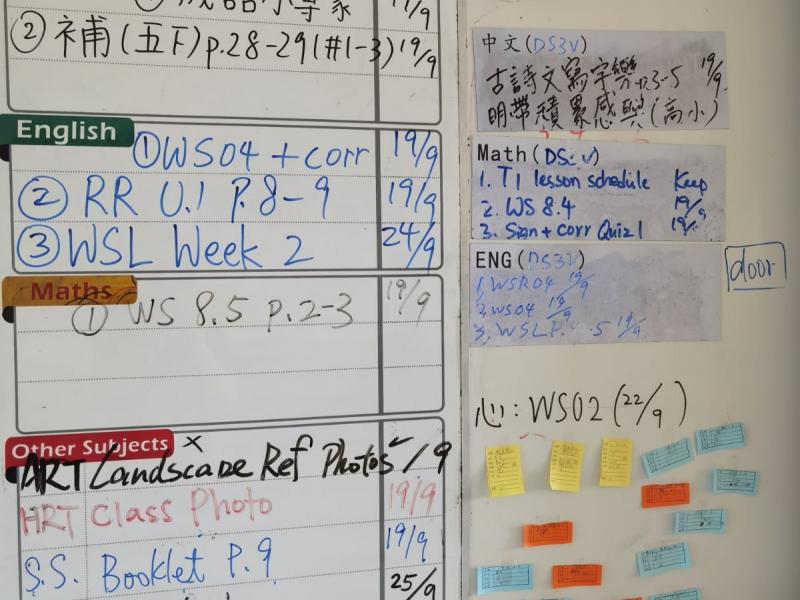 ② 補(五下)p.28-29(#1-3) 19/9
English
① WS04 + corr 19/9
② RR U.1 P.8-9 19/9
③ WSL Week 2 24/9
Maths
① WS 8.5 p.2-3 19/9
Other Subjects
ART Landscape Ref Photos /9
HRT Class Photo 19/9
S.S. Booklet P.9 19/9
25/9
中文(DS3V)
古詩文寫字樂 p.3-5 19/9
明帶積累感與(高小)
Math(DS V)
1. T1 lesson schedule Keep
2. WS 8.4 19/9
3. Sign + corr Quiz 1 19/
ENG(DS3V)
1. WSR04 19/9
2. WS04 19/9
3. WSL P. 5 19/9
door
心: WS02 (22/9)